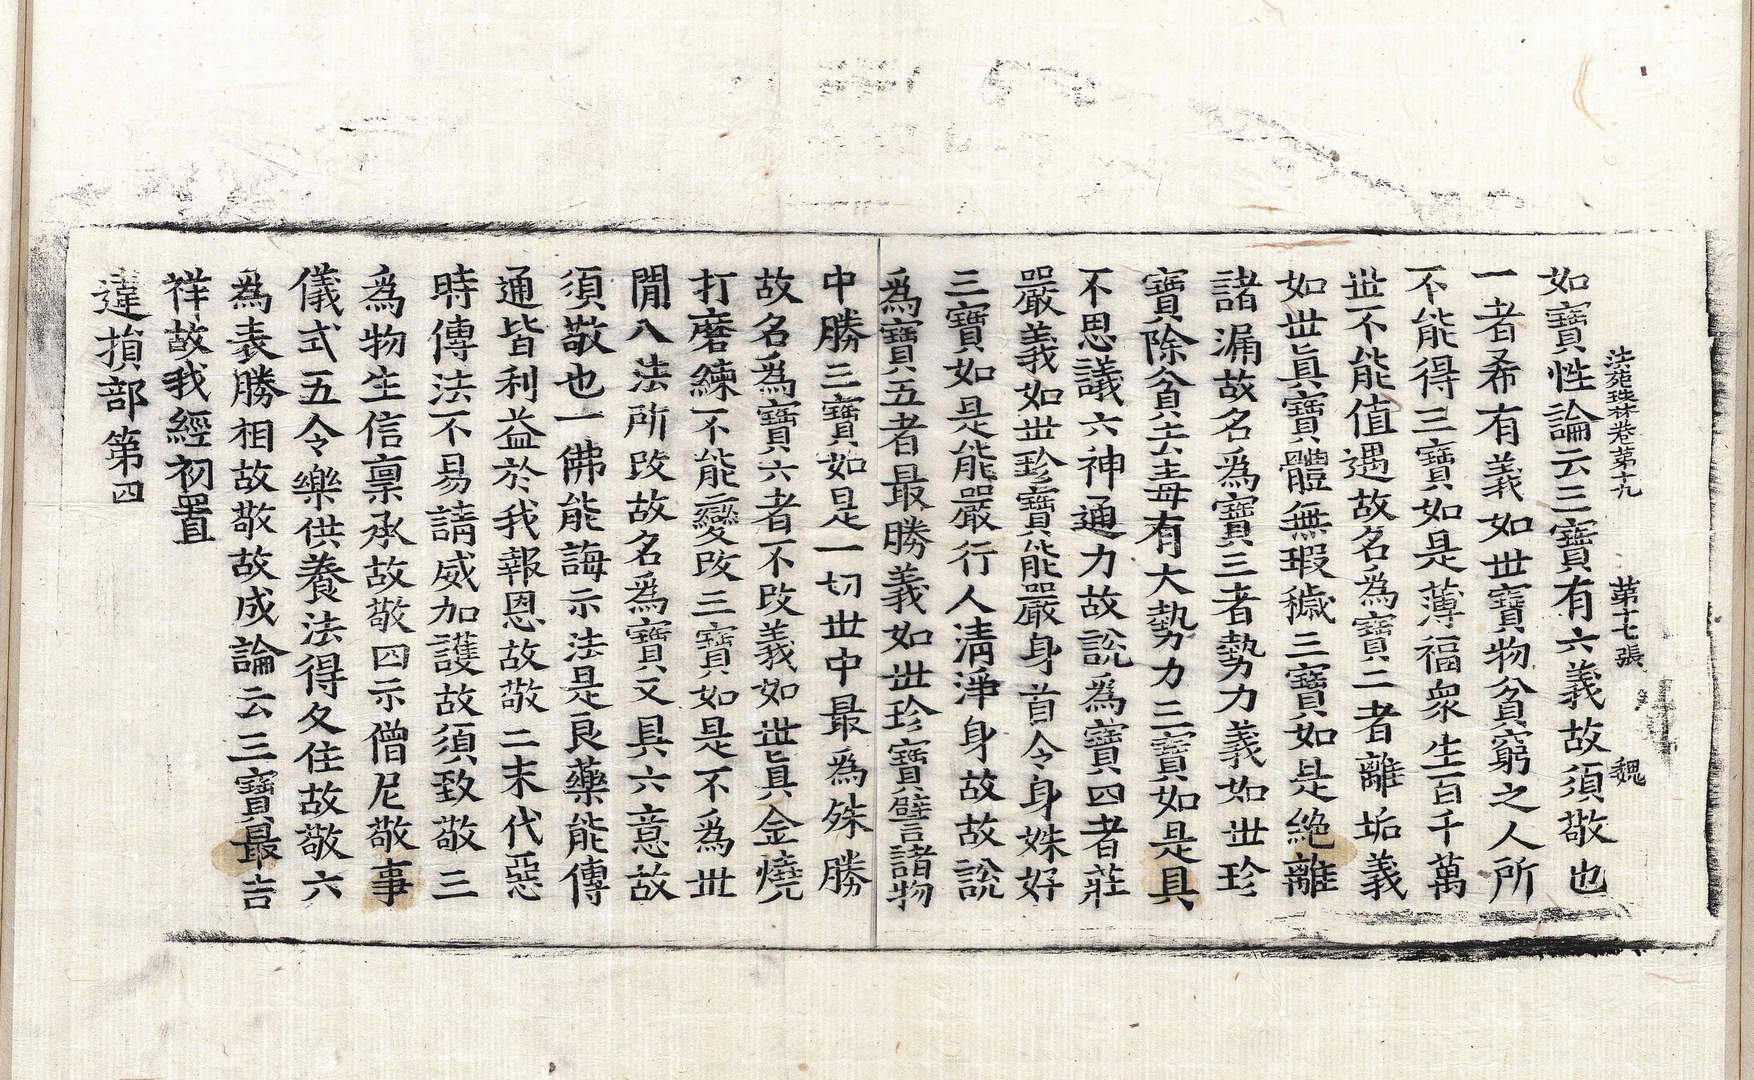 法苑珠林卷第十九 第十七張 魏
如寶性論云三寶有六義故須敬也
一者希有義如世寶物貧窮之人所
不能得三寶如是薄福衆生百千萬
世不能值遇故名爲寶二者離垢義
如世眞寶體無瑕穢三寶如是絶離
諸漏故名爲寶三者勢力義如世珍
寶除貧去毒有大勢力三寶如是具
不思議六神通力故說爲寶四者莊
嚴義如世珍寶能嚴身首令身姝好
三寶如是能嚴行人淸淨身故故說
爲寶五者最勝義如世珍寶譬諸物
中勝三寶如是一切世中最爲殊勝
故名爲寶六者不改義如世眞金燒
打磨練不能變改三寶如是不爲世
間八法所改故名爲寶又具六意故
須敬也一佛能誨示法是良藥能傳
通皆利益於我報恩故敬二末代惡
時傳法不易請威加護故須致敬三
爲物生信稟承故敬四示僧尼敬事
儀式五令樂供養法得久住故敬六
爲表勝相故敬故成論云三寶最吉
祥故我經初置
違損部第四